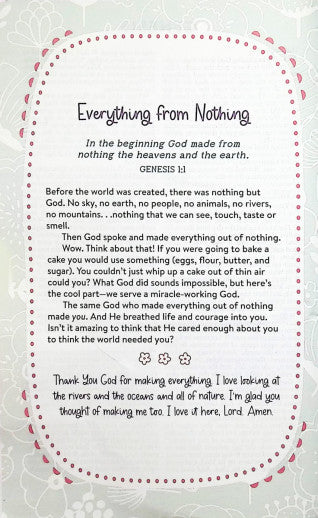 Everything from Nothing
In the beginning God made from
nothing the heavens and the earth.
GENESIS 1:1
Before the world was created, there was nothing but
God. No sky, no earth, no people, no animals, no rivers,
no mountains. . .nothing that we can see, touch, taste or
smell.
Then God spoke and made everything out of nothing.
Wow. Think about that! If you were going to bake a
cake you would use something (eggs, flour, butter, and
sugar). You couldn't just whip up a cake out of thin air
could you? What God did sounds impossible, but here's
the cool part—we serve a miracle-working God.
The same God who made everything out of nothing
made you. And He breathed life and courage into you.
Isn't it amazing to think that He cared enough about you
to think the world needed you?
Thank You God for making everything. I love looking at
the rivers and the oceans and all of nature. I'm glad you
thought of making me too. I love it here, Lord. Amen.